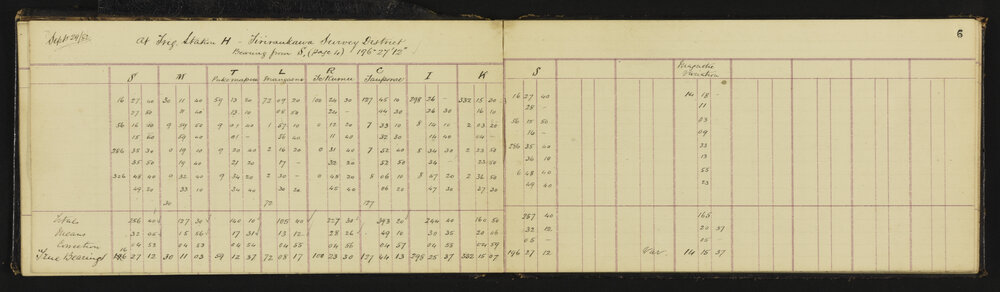 6
At Trig. Station H - Tiriraukawa Survey District
Bearing from S, (page 4) 196° 27' 12"
Magnetic
Variation
S M T L R C I K S
Pukemapou Mangaone Te Kumu Tauporae
16 27 40 30 11 40 59 13 20 72 09 20 100 24 30 127 45 10 298 26 - 332 15 30 16 27 40 14 18 -
27 50 11 40 13 10 08 50 24 - 44 30 26 30 16 10 28 - 11
56 16 10 9 59 50 9 01 40 1 57 10 0 12 20 7 33 10 8 14 10 2 03 20 56 15 50 03
15 50 59 40 01 - 56 40 11 40 32 30 14 40 04 - 16 - 09
286 35 30 0 19 10 9 20 40 2 16 20 0 31 40 7 52 40 8 34 30 2 23 50 286 35 40 33
35 50 19 40 21 20 17 - 32 30 52 50 34 23 50 36 10 13
326 48 40 0 32 40 9 34 20 2 30 - 0 45 30 8 06 10 8 47 20 2 36 50 6 48 40 55
49 20 33 10 34 40 30 20 45 40 06 20 47 30 37 20 49 40 23
30 72 127
Totals 256 40 127 30 140 10 105 40 227 30 393 20 244 40 160 50 257 40 165
Means 32 05 15 56 17 31 13 12 28 26 49 10 30 35 20 06 32 12 20 37
Correction 04 53 04 53 04 54 04 55 04 56 04 57 04 58 04 59 05 -
True Bearings 196 27 12 30 11 03 59 12 37 72 08 17 100 23 30 127 44 13 298 25 37 332 15 07 196 27 12 Var. 14 15 37